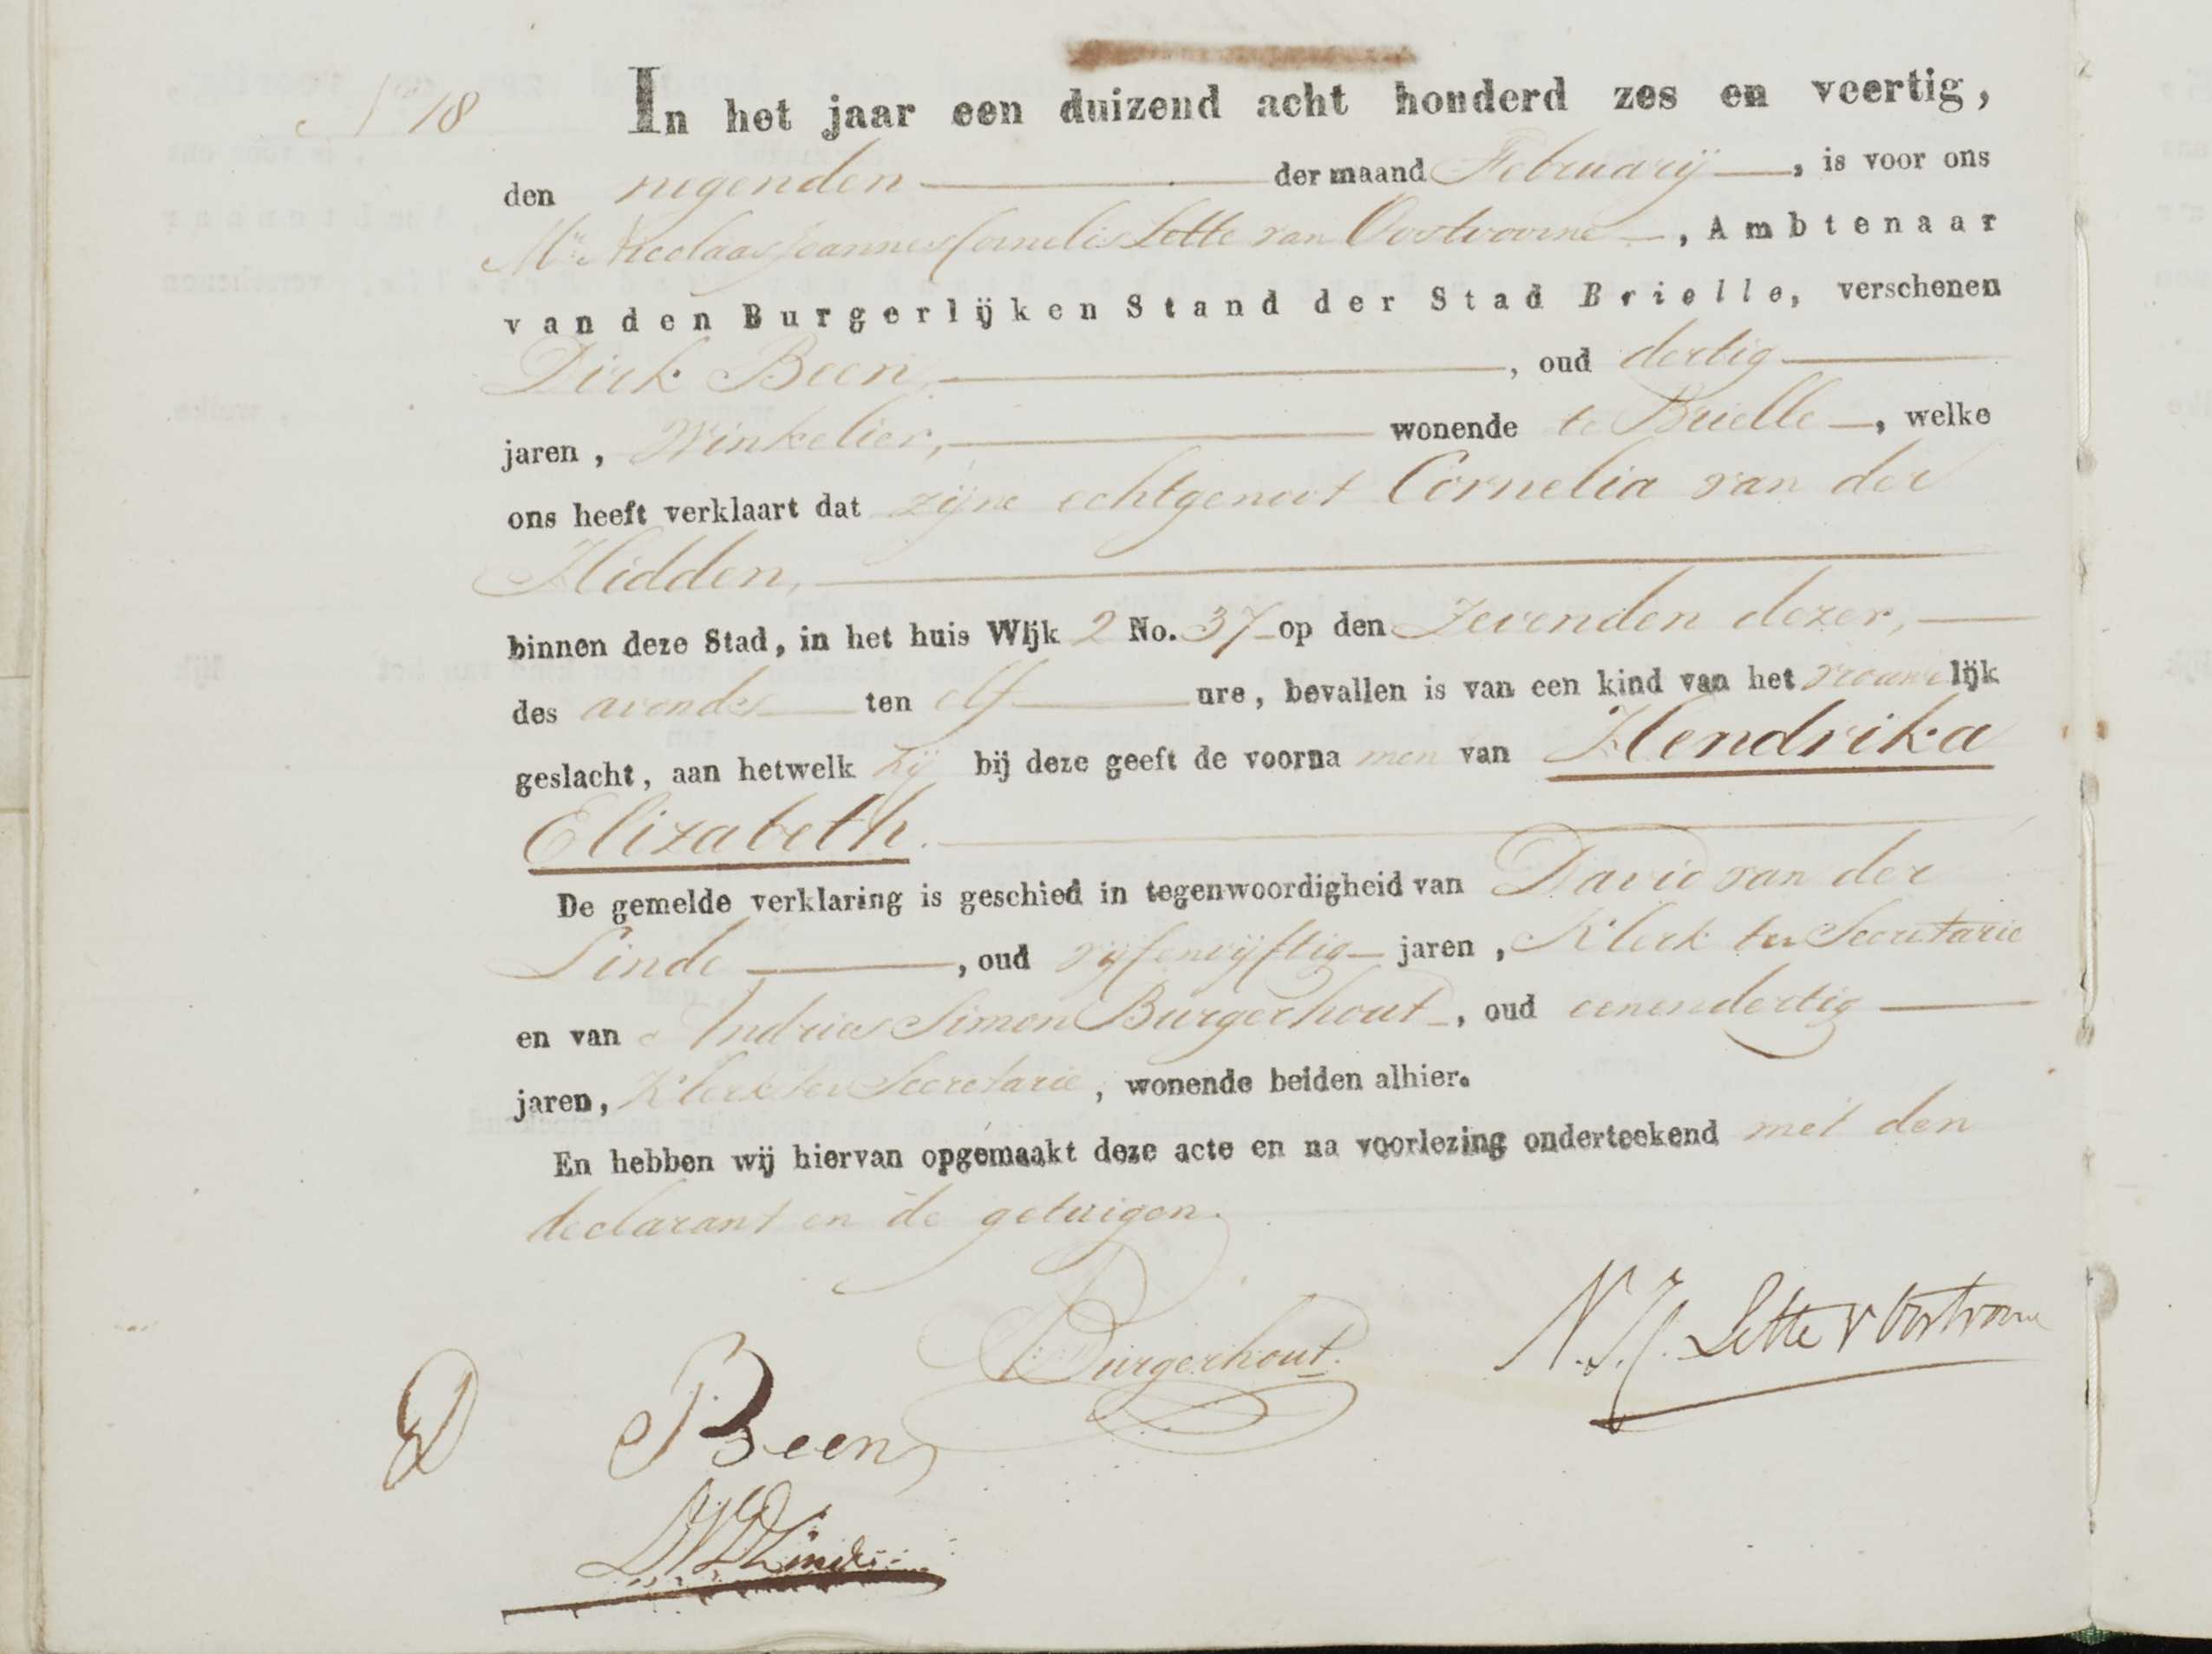 N 18
In het jaar een duizend acht honderd zes en veertig,
den negenden der maand Februarij, is voor ons
Mr. Nicolaas Joannes Cornelis Lette van Oostvoorne, Ambtenaar
van den Burgerlijken Stand der Stad Brielle, verschenen
Dirk Been, oud dertig
jaren, Winkelier, wonende te Brielle, welke
ons heeft verklaart dat zijne echtgenoot Cornelia van der
Hidden,
binnen deze Stad, in het huis Wijk 2 No. 37 op den Zevenden dezer,
des avonds ten elf ure, bevallen is van een kind van het vrouwelijk
geslacht, aan hetwelk hij bij deze geeft de voornamen van Hendrika
Elizabeth.
De gemelde verklaring is geschied in tegenwoordigheid van David van der
Linde, oud vijfenvijftig jaren, Klerk ter Secretarie
en van Andries Simon Burgerhout, oud eenendertig
jaren, Klerk ter Secretarie, wonende beiden alhier.
En hebben wij hiervan opgemaakt deze acte en na voorlezing onderteekend met den
declarant en de getuigen.
Burgerhout. N.J.C. Lette v Oostvoorne
D Been
DVDLinde